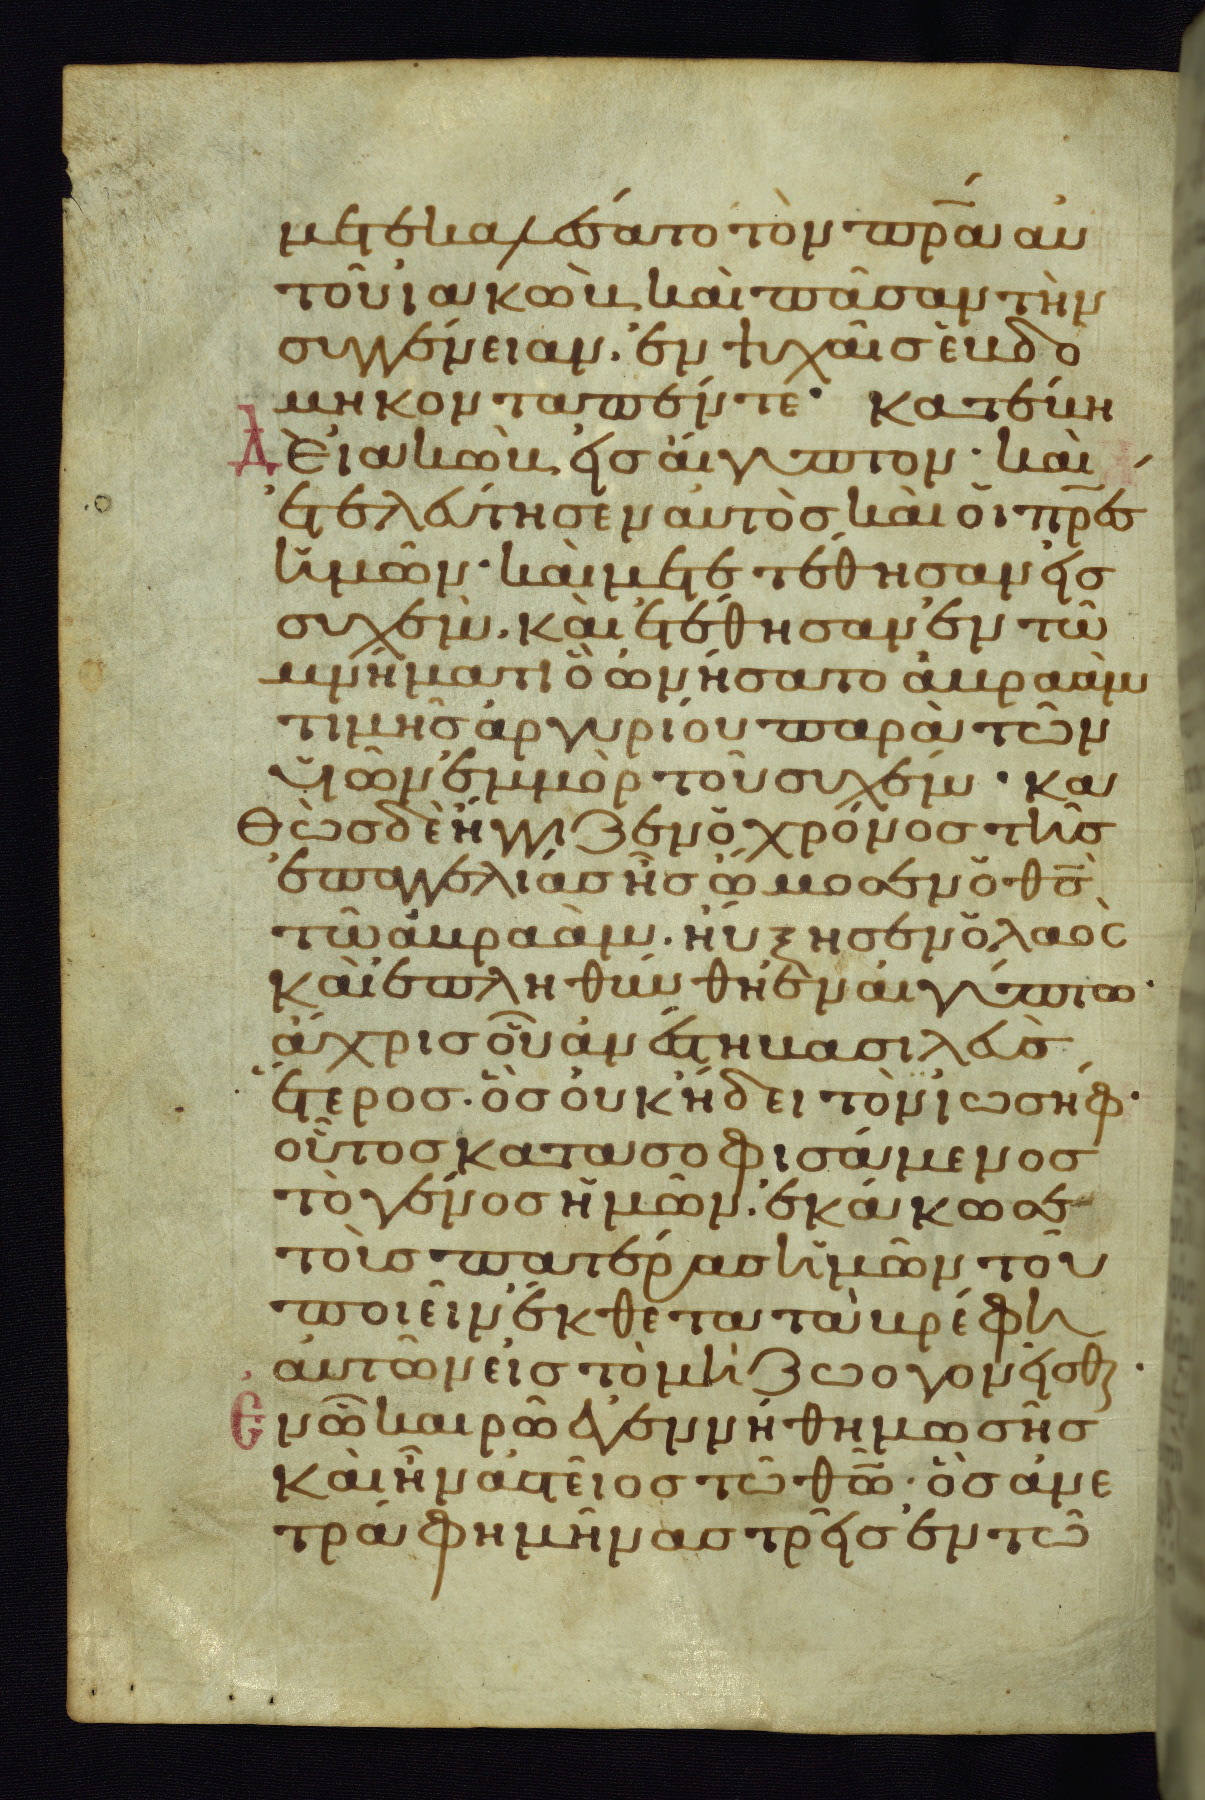 μετεκαλέσατο τὸν πρ̅α αὐ
τοῦ ἰακὼβ, καὶ πᾶσαν τὴν
συγγένειαν. ἐν ψυχαῖς ἑβδο
μηκονταπέντε· κατέβη
Δὲ ἰακὼβ εἰς αἴγυπτον· καὶ
ἐτελεύτησεν αὐτὸς καὶ οἱ πρ̅ες
ἡμῶν· καὶ μετετέθησαν εἰς
συχέμ. καὶ ἐτέθησαν ἐν τῶ
μνήματι ὃ ὠνήσατο ἀβραὰμ
τιμῆς ἀργυρίου παρὰ τῶν
υἱῶν ἐμμὸρ τοῦ συχέμ· κα
θὼς δὲ ἤγγιζεν ὁ χρόνος τῆς
ἐπαγγελίας ἧς ὤμοσεν ὁ θ̅ς
τῶ ἀβραάμ. ηὔξησεν ὁ λαὸς
καὶ ἐπληθύνθη ἐν αἰγύπτω·
ἄχρις οὗ ἀνέστη βασιλεὺς
ἕτερος. ὃς οὐκ ἤδει τὸν ἰωσήφ·
οὗτος κατασοφισάμενος
τὸ γένος ἡμῶν. ἐκάκωσε
τοὺς πατέρας ἡμῶν τοῦ
ποιεῖν ἔκθετα τὰ βρέφη
αὐτῶν εἰς τὸ μὴ ζωογονεῖσθαι·
Ἐν ὧ καιρῶ ἐγεννήθη μωσῆς
καὶ ἦν ἀστεῖος τῶ θ̅ω. ὃς ἀνε
τράφη μῆνας τρεῖς ἐν τῶ